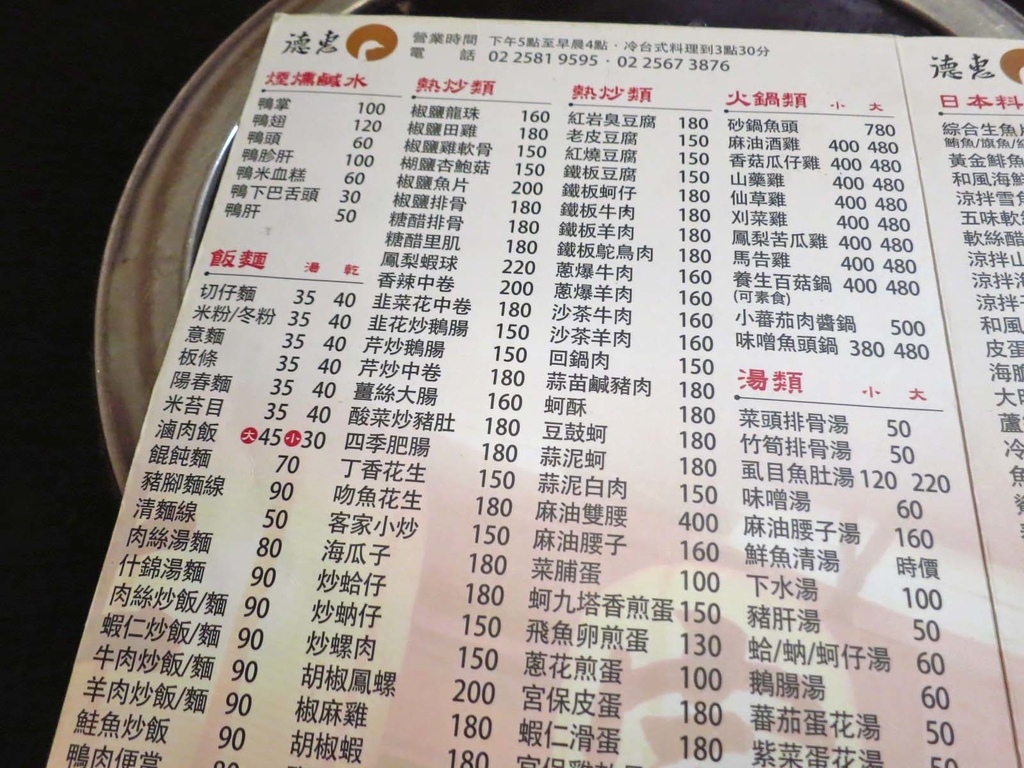 德惠
營業時間 下午5點至早晨4點·冷台式料理到3點30分
電 話 02 2581 9595·02 2567 3876
煙燻鹹水
鴨掌 100
鴨翅 120
鴨頭 60
鴨胗肝 100
鴨米血糕 60
鴨下巴舌頭 30
鴨肝 50
飯麵 湯 乾
切仔麵 35 40
米粉/冬粉 35 40
意麵 35 40
板條 35 40
陽春麵 35 40
米苔目 35 40
滷肉飯 大45 小30
餛飩麵 70
豬腳麵線 90
清麵線 50
肉絲湯麵 80
什錦湯麵 90
肉絲炒飯/麵 90
蝦仁炒飯/麵 90
牛肉炒飯/麵 90
羊肉炒飯/麵 90
鮭魚炒飯 90
鴨肉便當
熱炒類
椒鹽龍珠 160
椒鹽田雞 180
椒鹽雞軟骨 150
椒鹽杏鮑菇 150
椒鹽魚片 200
椒鹽排骨 180
糖醋排骨 180
糖醋里肌 180
鳳梨蝦球 220
香辣中卷 200
韭菜花中卷 180
韭花炒鵝腸 150
芹炒鵝腸 150
芹炒中卷 180
薑絲大腸 160
酸菜炒豬肚 180
四季肥腸 180
丁香花生 150
吻魚花生 180
客家小炒 150
海瓜子 180
炒蛤仔 180
炒蚋仔 150
炒螺肉 150
胡椒鳳螺 200
椒麻雞 180
胡椒蝦 180
熱炒類
紅岩臭豆腐 180
老皮豆腐 150
紅燒豆腐 150
鐵板豆腐 150
鐵板蚵仔 180
鐵板牛肉 180
鐵板羊肉 180
鐵板鴕鳥肉 180
蔥爆牛肉 160
蔥爆羊肉 160
沙茶牛肉 160
沙茶羊肉 160
回鍋肉 150
蒜苗鹹豬肉 180
蚵酥 180
豆鼓蚵 180
蒜泥蚵 180
蒜泥白肉 150
麻油雙腰 400
麻油腰子 160
菜脯蛋 100
蚵九塔香煎蛋 150
飛魚卵煎蛋 130
蔥花煎蛋 100
宮保皮蛋 180
蝦仁滑蛋 180
火鍋類 小 大
砂鍋魚頭 780
麻油酒雞 400 480
香菇瓜仔雞 400 480
山藥雞 400 480
仙草雞 400 480
刈菜雞 400 480
鳳梨苦瓜雞 400 480
馬告雞 400 480
養生百菇鍋 400 480
(可素食)
小蕃茄肉醬鍋 500
味噌魚頭鍋 380 480
湯類 小 大
菜頭排骨湯 50
竹筍排骨湯 50
虱目魚肚湯 120 220
味噌湯 60
麻油腰子湯 160
鮮魚清湯 時價
下水湯 100
豬肝湯 50
蛤/蚋/蚵仔湯 60
鵝腸湯 60
蕃茄蛋花湯 50
紫菜蛋花湯 50
德惠
日本料
綜合生魚
鮪魚/旗魚/
黃金鯡魚
和風海鮮
涼拌雪
五味軟
軟絲醋
涼拌山
涼拌海
涼拌
和風
皮蛋
海膽
大
蘆
冷
魚